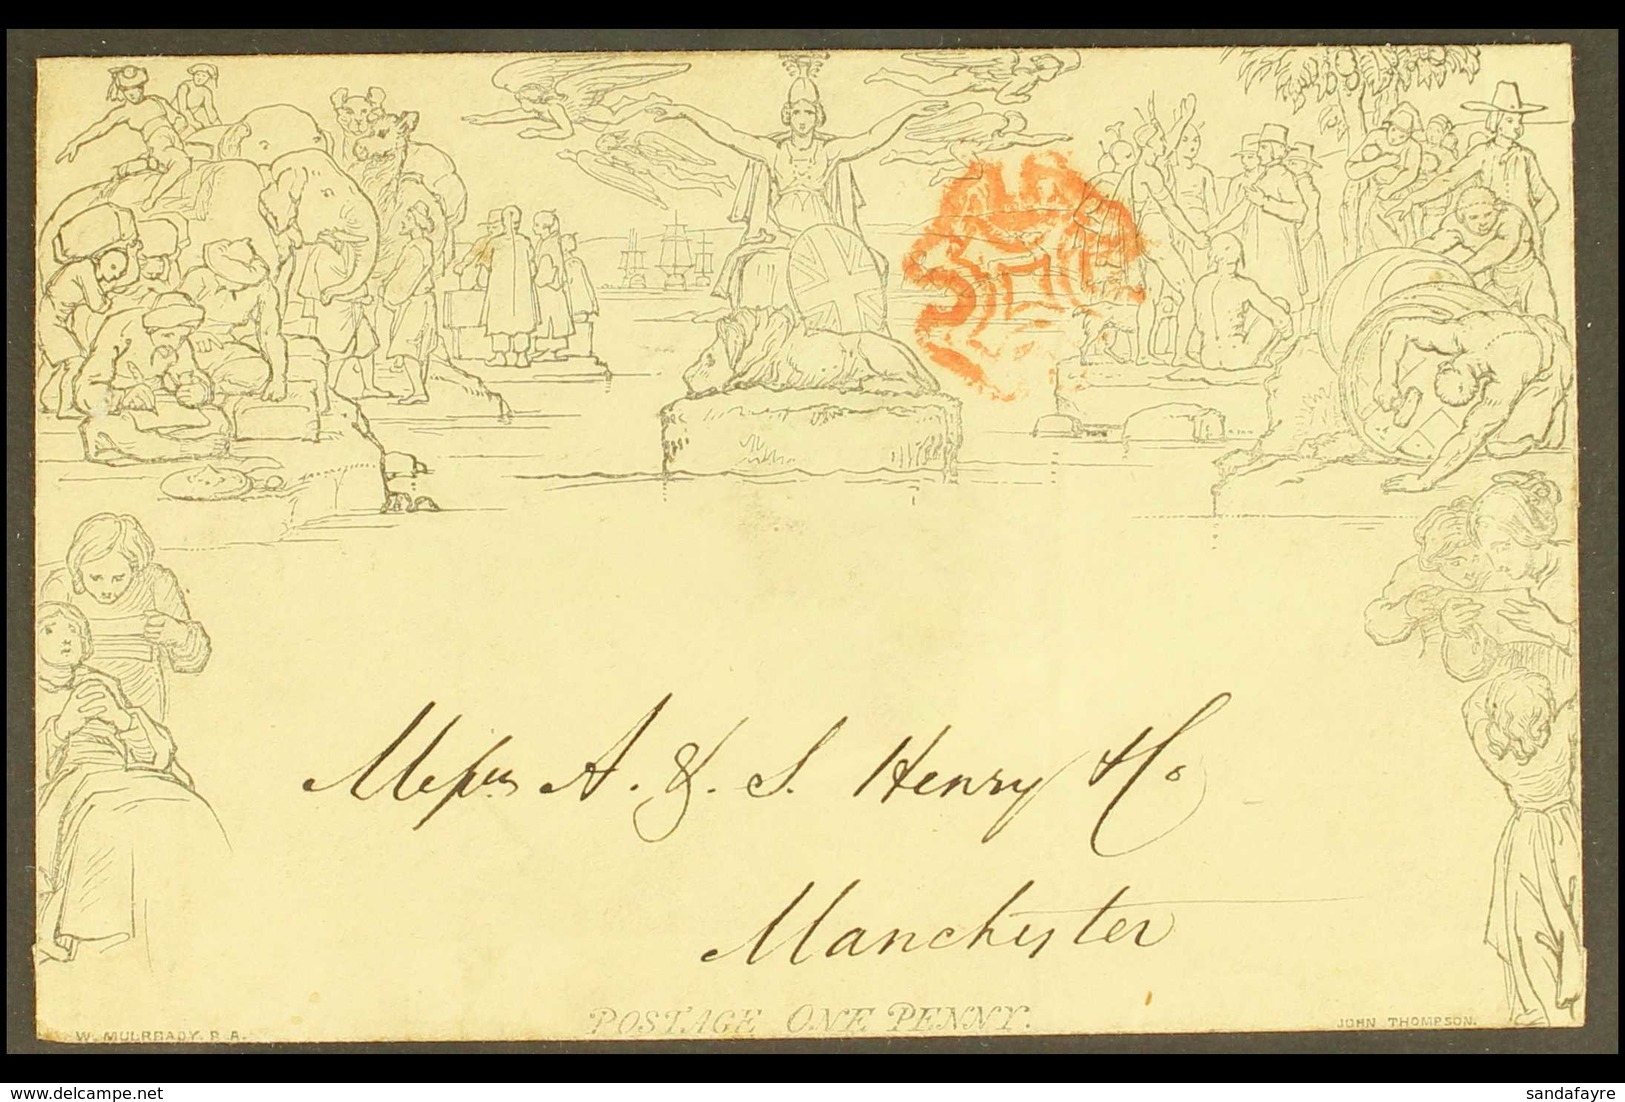 Mefsrs A. & S. Henry & Co
Manchester
POSTAGE ONE PENNY.
W. MULREADY. R.A.
JOHN THOMPSON.
www.delcampe.net
sandafayre